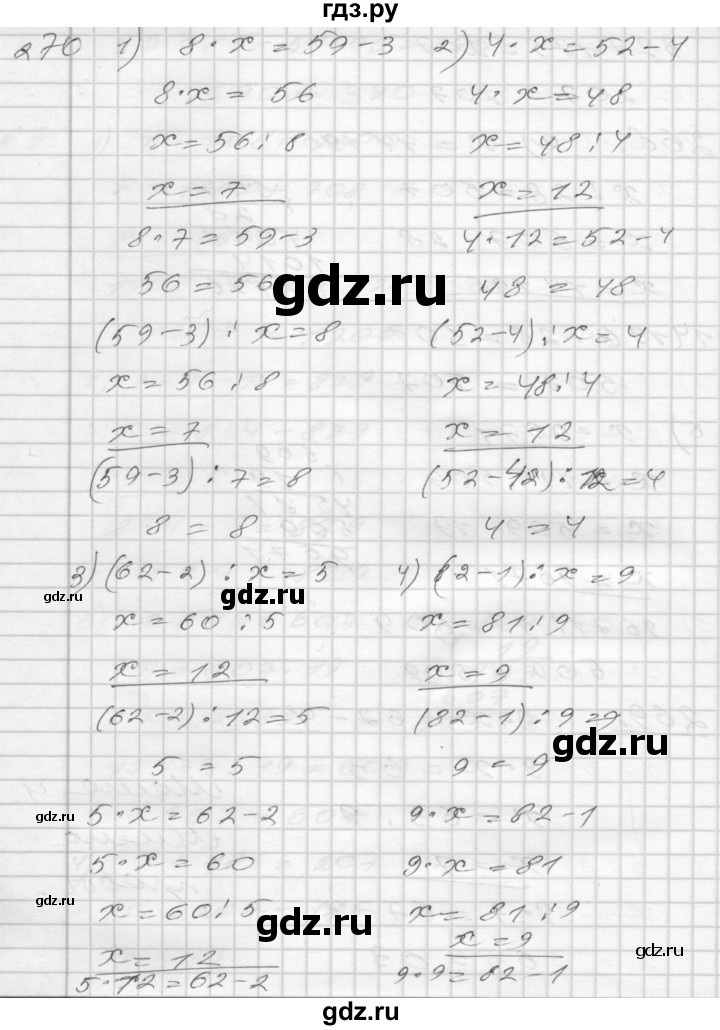 гдз.ру
270 1) 8·x = 59-3 2) 4·x = 52-4
8·x = 56 4·x = 48
x = 56:8 x = 48:4
x = 7 x = 12
8·7 = 59-3 4·12 = 52-4
56 = 56 48 = 48
gdz.ru
(59-3):x = 8 (52-4):x = 4
x = 56:8 x = 48:4
x = 7 x = 12
(59-3):7 = 8 (52-4):12 = 4
8 = 8 4 = 4
3) (62-2):x = 5 4) (82-1):x = 9
gdz.ru
x = 60:5 x = 81:9
x = 12 x = 9
(62-2):12 = 5 (82-1):9 = 9
gdz.ru
5 = 5 9 = 9
gdz.ru
5·x = 62-2 9·x = 82-1
5·x = 60 9·x = 81
gdz.ru
x = 60:5 x = 81:9
gdz.ru
x = 12 x = 9
gdz.ru
5·12 = 62-2 9·9 = 82-1
gdz.ru